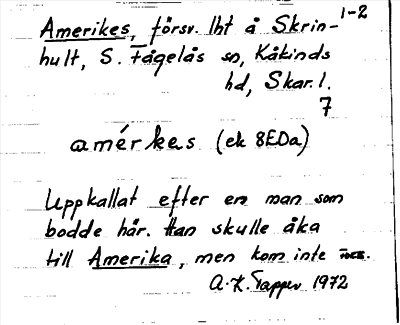 1-2
Amerikes, försv. lht å Skrin-
hult, S. Fågelås sn, Kåkinds
hd, Skar. l.
7
amérkes (ek 8EDa)
Uppkallat efter en man som
bodde här. Han skulle åka
till Amerika, men kom inte
A.K. Tapper 1972